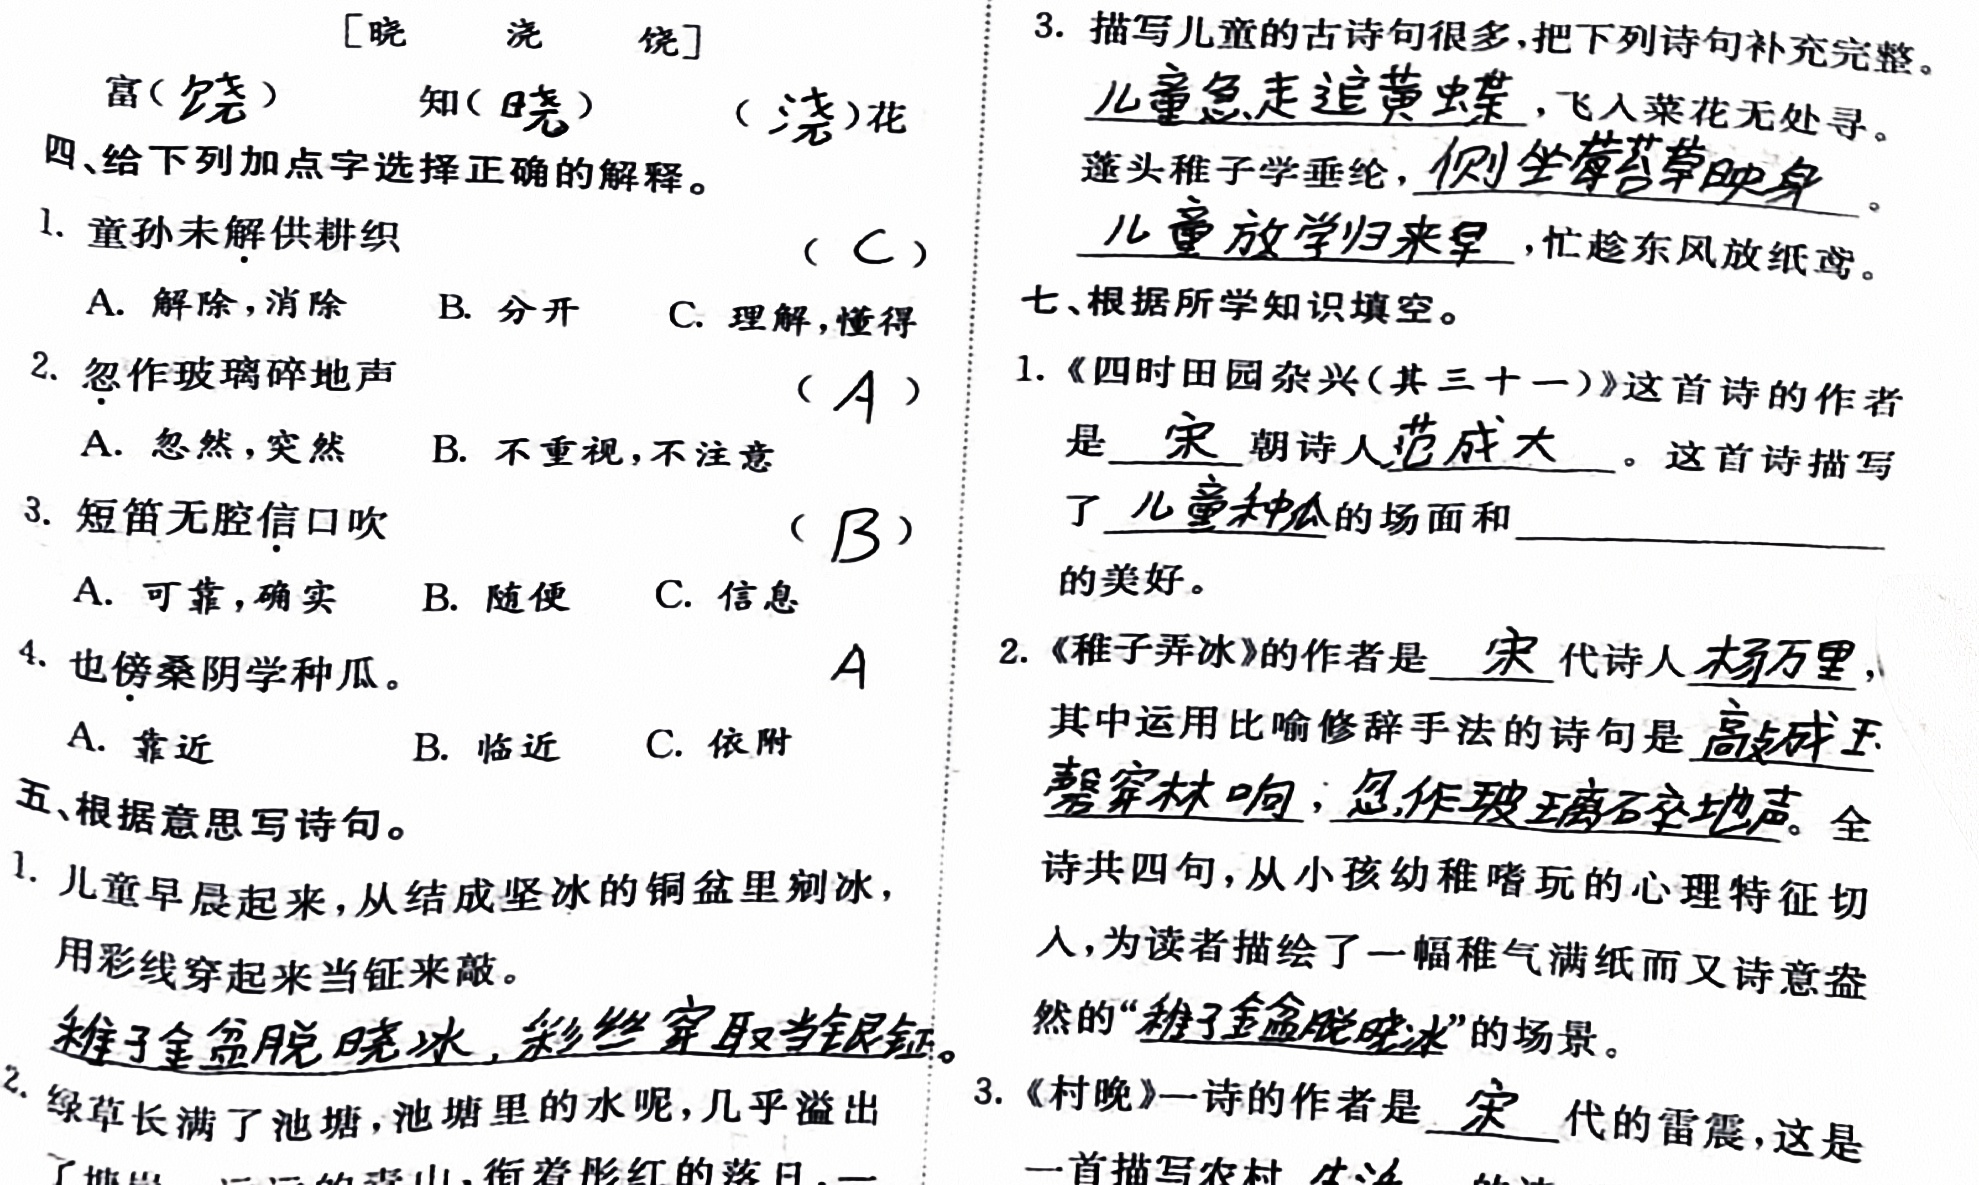 [晓 浇 饶]
富(饶) 知(晓) (浇)花
四、给下列加点字选择正确的解释。
1. 童孙未解供耕织 (C)
A. 解除,消除 B. 分开 C. 理解,懂得
2. 忽作玻璃碎地声 (A)
A. 忽然,突然 B. 不重视,不注意
3. 短笛无腔信口吹 (B)
A. 可靠,确实 B. 随便 C. 信息
4. 也傍桑阴学种瓜。 A
A. 靠近 B. 临近 C. 依附
五、根据意思写诗句。
1. 儿童早晨起来,从结成坚冰的铜盆里剜冰,
用彩线穿起来当钲来敲。
稚子金盆脱晓冰,彩丝穿取当银钲。
2. 绿草长满了池塘,池塘里的水呢,几乎溢出
了塘岸。远远的青山,衔着彤红的落日,一
3. 描写儿童的古诗句很多,把下列诗句补充完整。
儿童急走追黄蝶,飞入菜花无处寻。
蓬头稚子学垂纶,侧坐莓苔草映身。
儿童放学归来早,忙趁东风放纸鸢。
七、根据所学知识填空。
1.《四时田园杂兴(其三十一)》这首诗的作者
是 宋 朝诗人范成大。这首诗描写
了 儿童种瓜的场面和
的美好。
2.《稚子弄冰》的作者是 宋 代诗人 杨万里,
其中运用比喻修辞手法的诗句是 敲成玉
磬穿林响;忽作玻璃碎地声。全
诗共四句,从小孩幼稚嗜玩的心理特征切
入,为读者描绘了一幅稚气满纸而又诗意盎
然的“稚子金盆脱晓冰”的场景。
3.《村晚》一诗的作者是 宋 代的雷震,这是
一首描写农村 生活 的